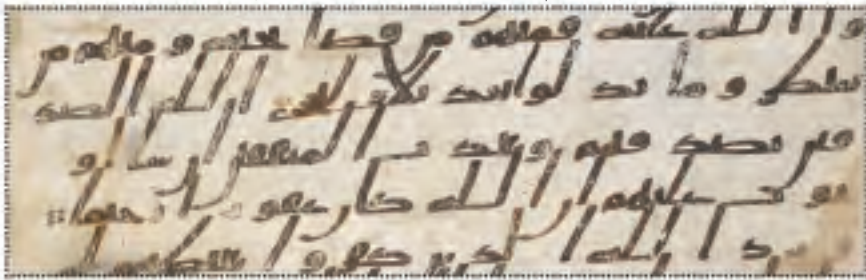 وا الله عليه فمنهم من قضا نحبه و منهم من
ينتظر و ما بدلوا تبديلا ليجزي الله الصد
قين بصدقهم ويعذب المنفقين ان شا او
يتوب عليهم ان الله كان غفورا رحيما
ورد الله الذين كفروا بغيظهم